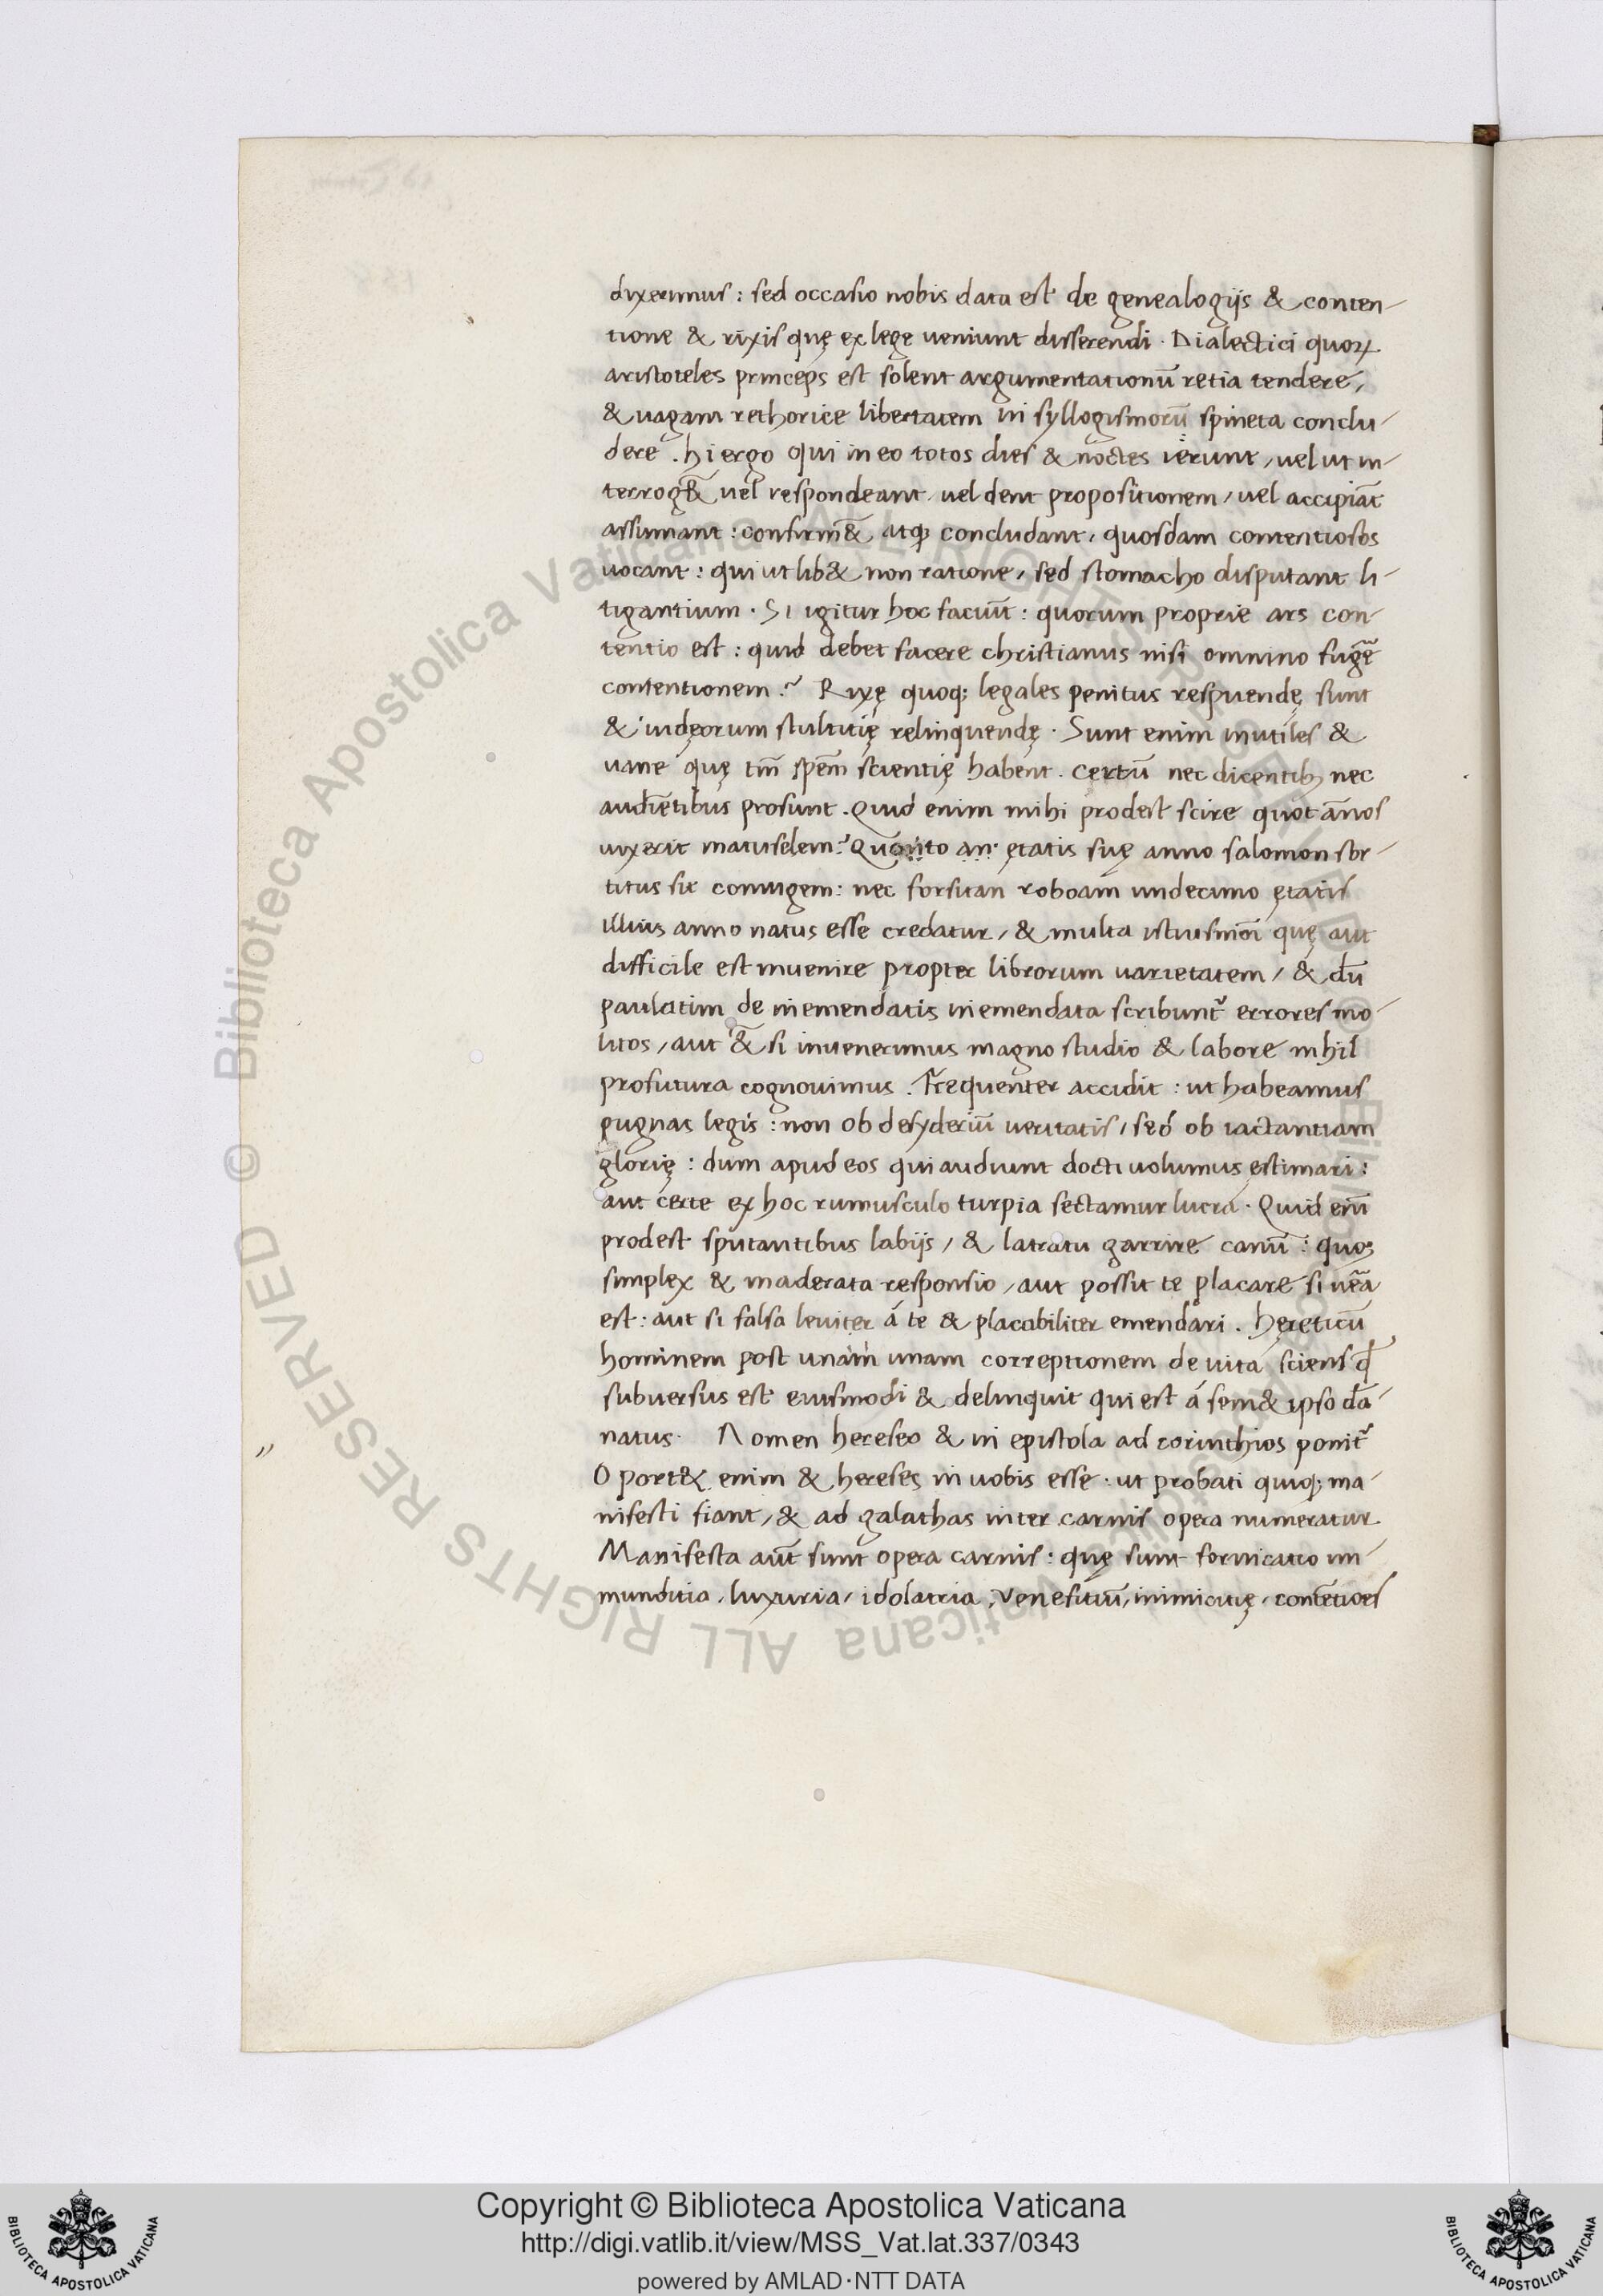 dixerimus : sed occasio nobis data est de genealogijs & conten-
tione & rixis quę ex lege ueniunt disserendi . Dialectici quoꝝ
aristoteles princeps est solent argumentationū retia tendere,
& uagam rethorice libertatem in syllogismorū spineta conclu-
dere . hi ergo qui in eo totos dies & noctes ierunt, uel ut in-
terrog&̄ uel respondeant, uel dent propositionem, uel accipiāt
assumant : confirm&̄ atq; concludant, quosdam contentiosos
uocant : qui ut lib& non ratione, sed stomacho disputant li-
tigantium . Si igitur hoc faciūt : quorum proprie ars con-
tentio est : quid debet facere christianus nisi omnino fugē̄
contentionem ? Rixę quoq; legales penitus respuendę sunt
& iudęorum stultitię relinquendę . Sunt enim inutiles &
uane quę tm̄ spēm scientię habent . Certū nec dicentibꝫ nec
audiētibus prosunt . Quid enim mihi prodest scire quot ānos
uixerit matuselem ? Quonto an . ętatis suę anno salomon sor-
titus sit coniugem : nec forsitan roboam undecimo ętatis
illius anno natus esse credatur, & multa istiusmōi quę aut
difficile est inuenire propter librorum uarietatem, & dū
paulatim de inemendatis inemendata scribunt᷑ errores ino-
litos, aut &̄ si inuenerimus magno studio & labore nihil
profutura cognouimus . Frequenter accidit : ut habeamus
pugnas legis : non ob desyderiū ueritatis, sed ob iactantiam
glorię : dum apud eos qui audiunt docti uolumus ęstimari :
aut certe ex hoc rumusculo turpia sectamur lucra . Quid eiū
prodest sputantibus labijs, & latratu garrire canū : quos
simplex & maderata responsio, aut possit te placare si uēa
est : aut si falsa leuiter á te & placabiliter emendari . hęreticū
hominem post unam unam correptionem de uita sciens ꝙ
subuersus est eiusmodi & delinquit qui est á sem& ipso dā-
natus . Nomen hereseo & in epistola ad corinthios ponit᷑
Oport& enim & hereses in uobis esse : ut probati quiq; ma-
nifesti fiant, & ad galathas inter carnis opera numeratur
Manifesta aūt sunt opera carnis : quę sunt fornicatio im-
munditia, luxuria, idolatria, Venefitiū, inimicitię, contētiōes
Copyright © Biblioteca Apostolica Vaticana
http://digi.vatlib.it/view/MSS_Vat.lat.337/0343
powered by AMLAD·NTT DATA
BIBLIOTECA APOSTOLICA VATICANA
BIBLIOTECA APOSTOLICA VATICANA
© Biblioteca Apostolica Vaticana ALL RIGHTS RESERVED
© Biblioteca Apostolica Vaticana ALL RIGHTS RESERVED